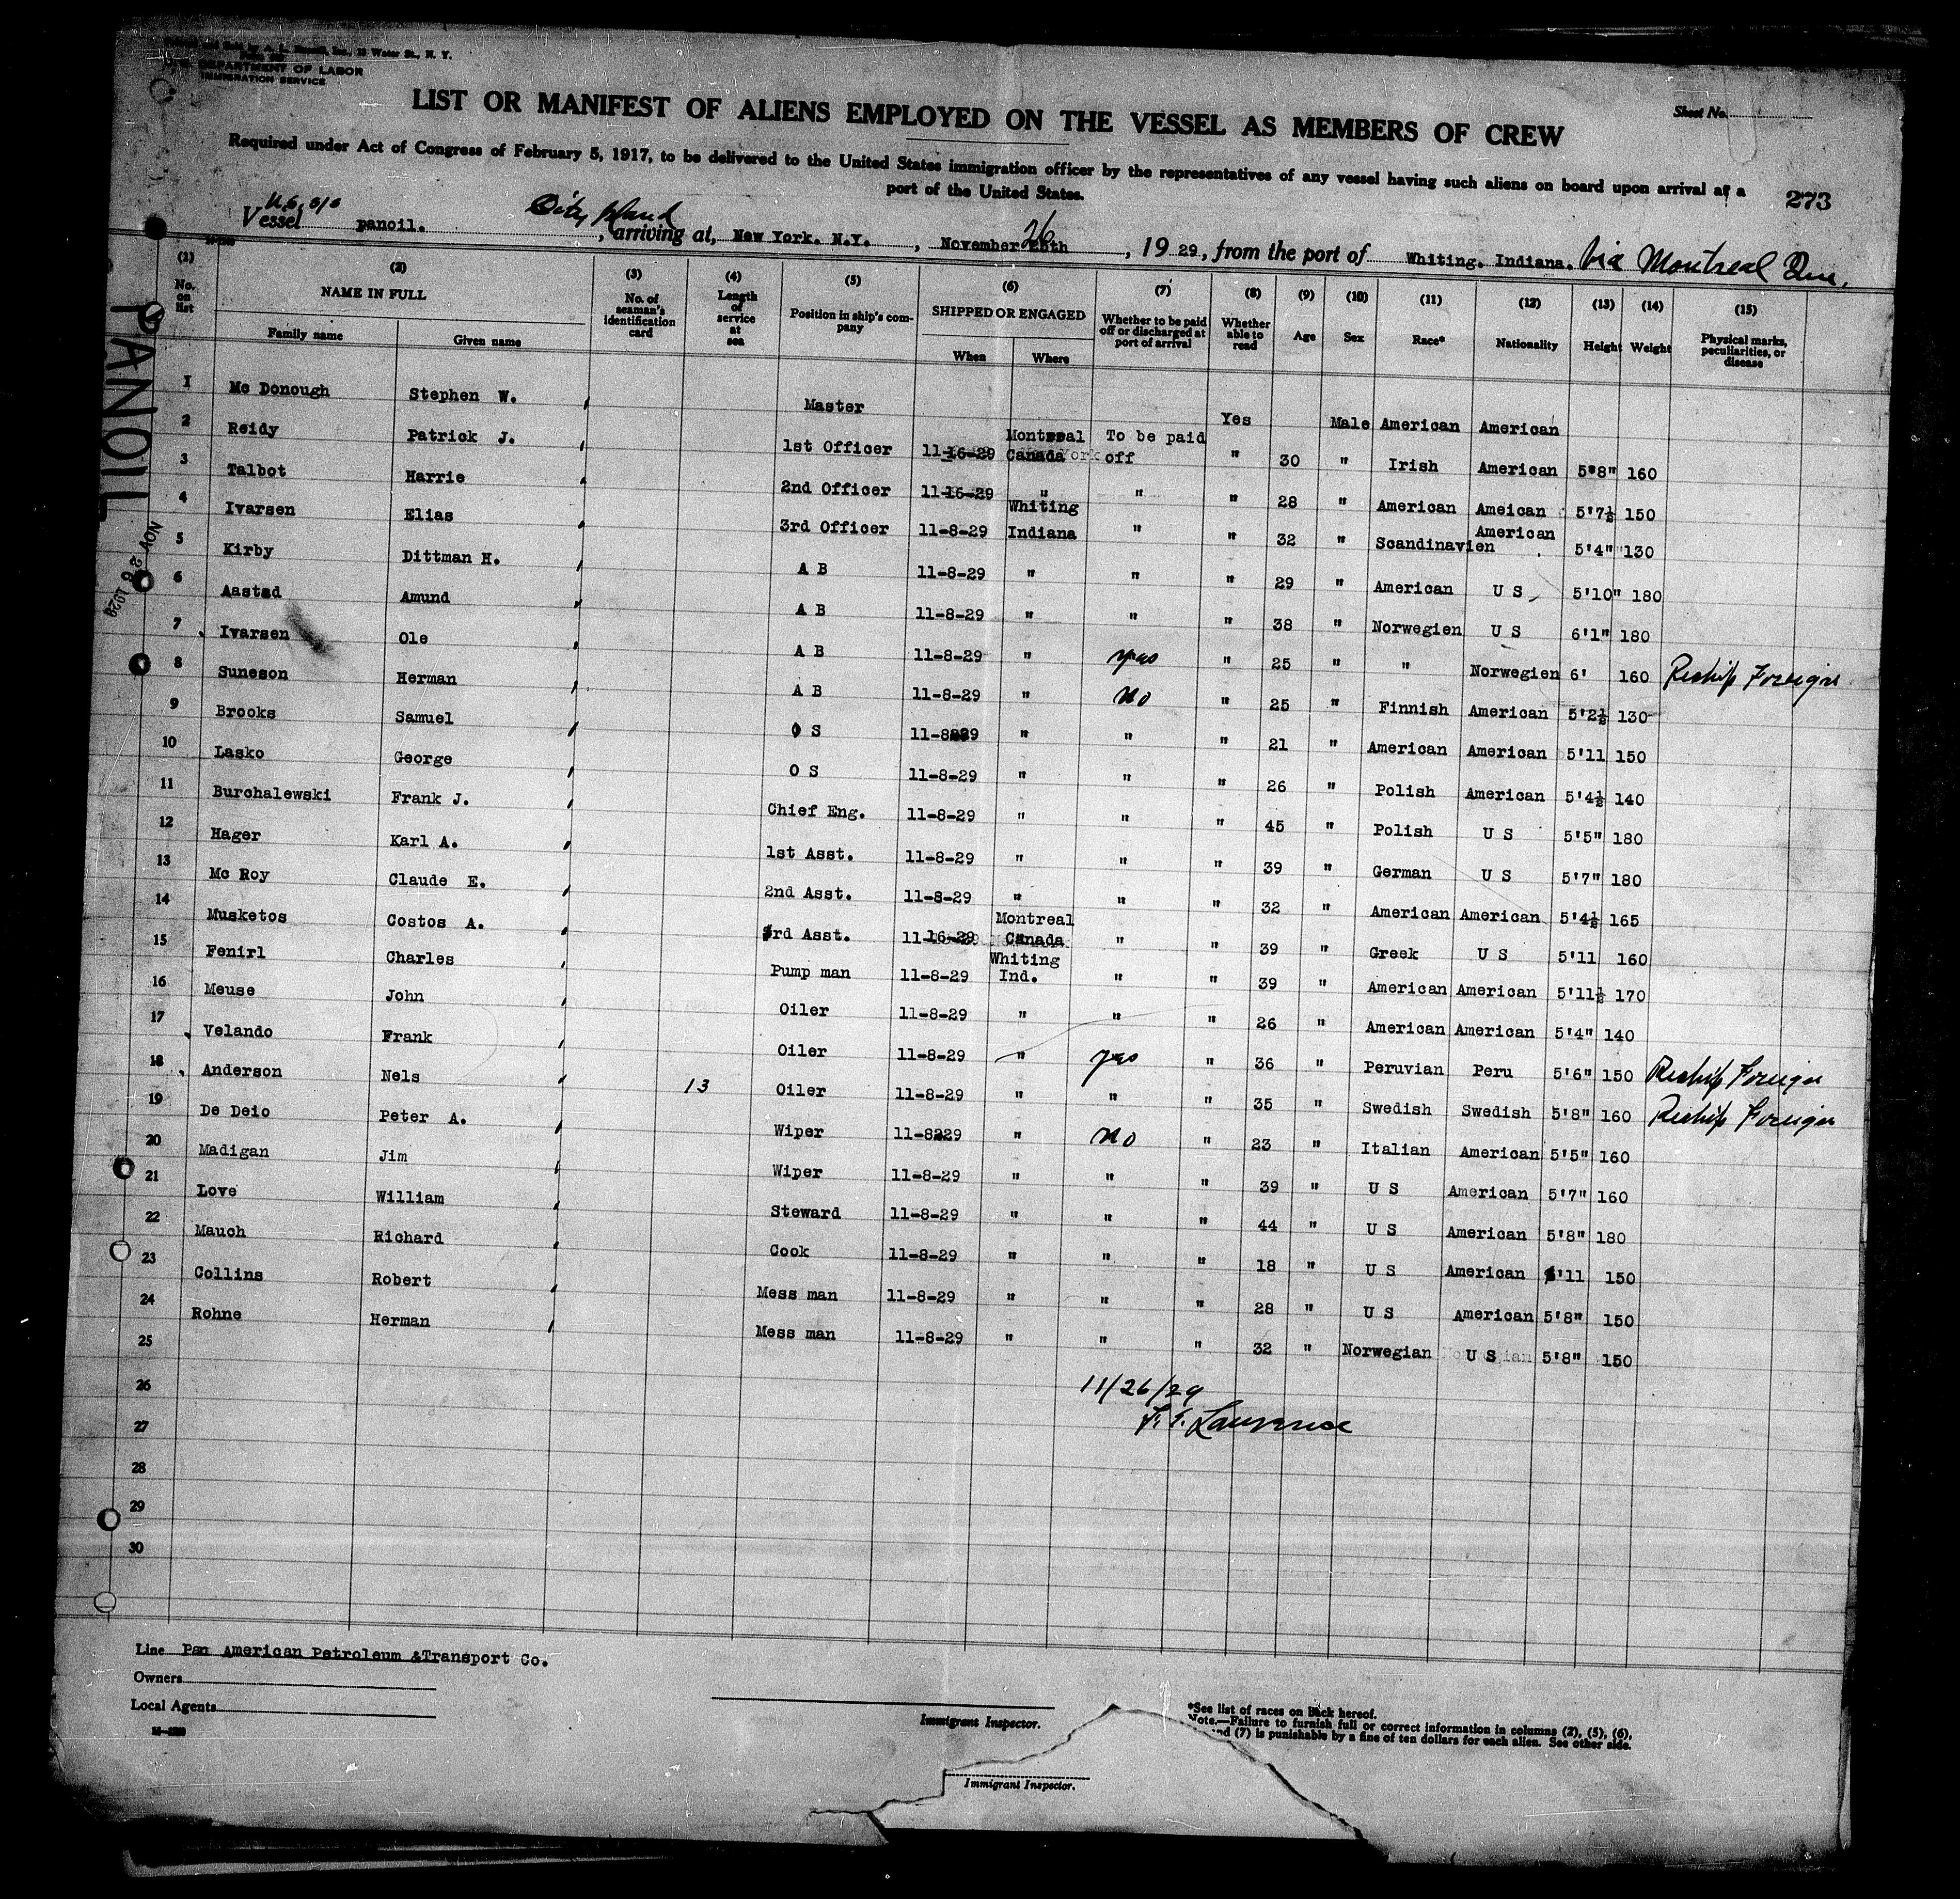 DEPARTMENT OF LABOR
IMMIGRATION SERVICE
Sheet No.
LIST OR MANIFEST OF ALIENS EMPLOYED ON THE VESSEL AS MEMBERS OF CREW
Required under Act of Congress of February 5, 1917, to be delivered to the United States immigration officer by the representatives of any vessel having such aliens on board upon arrival at a
port of the United States.
273
Vessel panoil. City Island, arriving at, New York. N.Y., November 26th, 1929, from the port of Whiting. Indiana. Via Montreal Que.
PANOIL
NOV 26 1929
(1) (2) (3) (4) (5) (6) (7) (8) (9) (10) (11) (12) (13) (14) (15)
No. on list NAME IN FULL No. of seaman's identification card Length of service at sea Position in ship's company SHIPPED OR ENGAGED Whether to be paid off or discharged at port of arrival Whether able to read Age Sex Race* Nationality Height Weight Physical marks, peculiarities, or disease
Family name Given name When Where
1 Mc Donough Stephen W. Master Yes Male American American
2 Reidy Patrick J. 1st Officer 11-16-29 Montreal Canada To be paid off " 30 " Irish American 5'8" 160
3 Talbot Harrie 2nd Officer 11-16-29 " " " 28 " American Ameican 5'7½ 150
4 Ivarsen Elias 3rd Officer 11-8-29 Whiting Indiana " " 32 " Scandinavien American 5'4" 130
5 Kirby Dittman H. A B 11-8-29 " " " 29 " American U S 5'10" 180
6 Aastad Amund A B 11-8-29 " " " 38 " Norwegien U S 6'1" 180
7 Ivarsen Ole A B 11-8-29 " yes " 25 " " Norwegien 6' 160 Reship Foreign
8 Suneson Herman A B 11-8-29 " no " 25 " Finnish American 5'2½ 130
9 Brooks Samuel O S 11-8-29 " " " 21 " American American 5'11 150
10 Lasko George O S 11-8-29 " " " 26 " Polish American 5'4½ 140
11 Burchalewski Frank J. Chief Eng. 11-8-29 " " " 45 " Polish U S 5'5" 180
12 Hager Karl A. 1st Asst. 11-8-29 " " " 39 " German U S 5'7" 180
13 Mc Roy Claude E. 2nd Asst. 11-8-29 " " " 32 " American American 5'4½ 165
14 Musketos Costos A. 3rd Asst. 11-16-29 Montreal Canada " " 39 " Greek U S 5'11 160
15 Fenirl Charles Pump man 11-8-29 Whiting Ind. " " 39 " American American 5'11½ 170
16 Meuse John Oiler 11-8-29 " " " 26 " American American 5'4" 140
17 Velando Frank Oiler 11-8-29 " yes " 36 " Peruvian Peru 5'6" 150 Reship Foreign
18 Anderson Nels 13 Oiler 11-8-29 " " " 35 " Swedish Swedish 5'8" 160 Reship Foreign
19 De Deio Peter A. Wiper 11-8-29 " no " 23 " Italian American 5'5" 160
20 Madigan Jim Wiper 11-8-29 " " " 39 " U S American 5'7" 160
21 Love William Steward 11-8-29 " " " 44 " U S American 5'8" 180
22 Mauch Richard Cook 11-8-29 " " " 18 " U S American 5'11 150
23 Collins Robert Mess man 11-8-29 " " " 28 " U S American 5'8" 150
24 Rohne Herman Mess man 11-8-29 " " " 32 " Norwegian U S 5'8" 150
25
26 11/26/29
27 Lawrence
28
29
30
Line Pan American Petroleum &Transport Co.
Owners
Local Agents
Immigrant Inspector.
Immigrant Inspector.
*See list of races on Back hereof.
Note.—Failure to furnish full or correct information in columns (2), (5), (6),
and (7) is punishable by a fine of ten dollars for each alien. See other side.